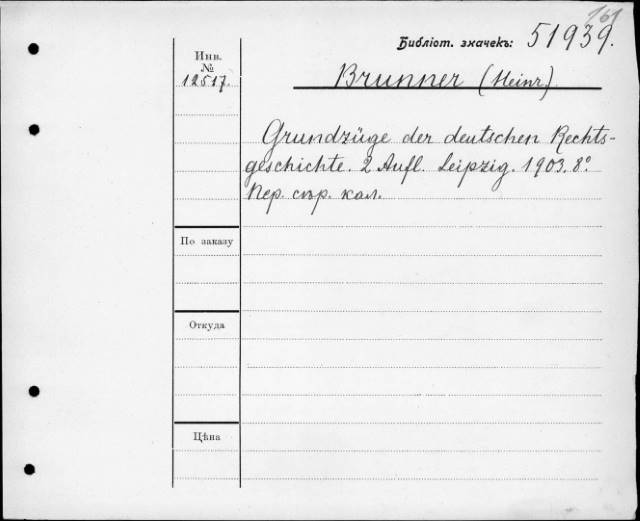 161
Библiот. значекъ: 51939.
Инв.
№
12517.
Brunner (Heinr)
Grundzüge der deutschen Rechts-
geschichte. 2 Aufl. Leipzig. 1903. 8°.
Пер. сѣр. кал.
По заказу
Откуда
Цѣна